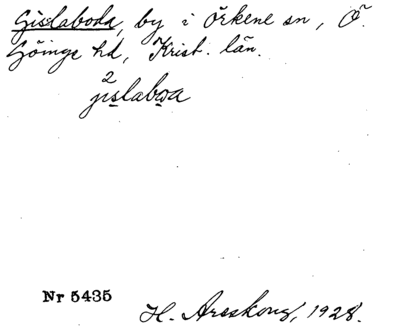 Gislaboda, by i Örkene sn, Ö.
Göinge hd, Krist. län.
2
jislaboa
Nr 5435
H. Areskoug, 1928.